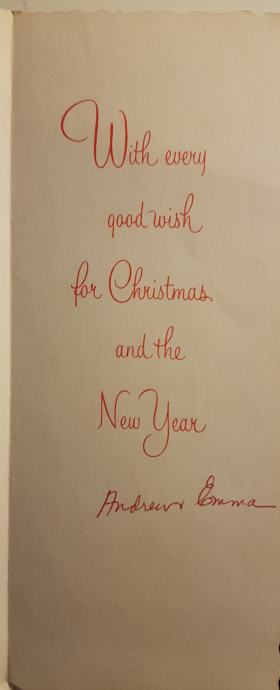 With every
good wish
for Christmas
and the
New Year
Andrew & Emma